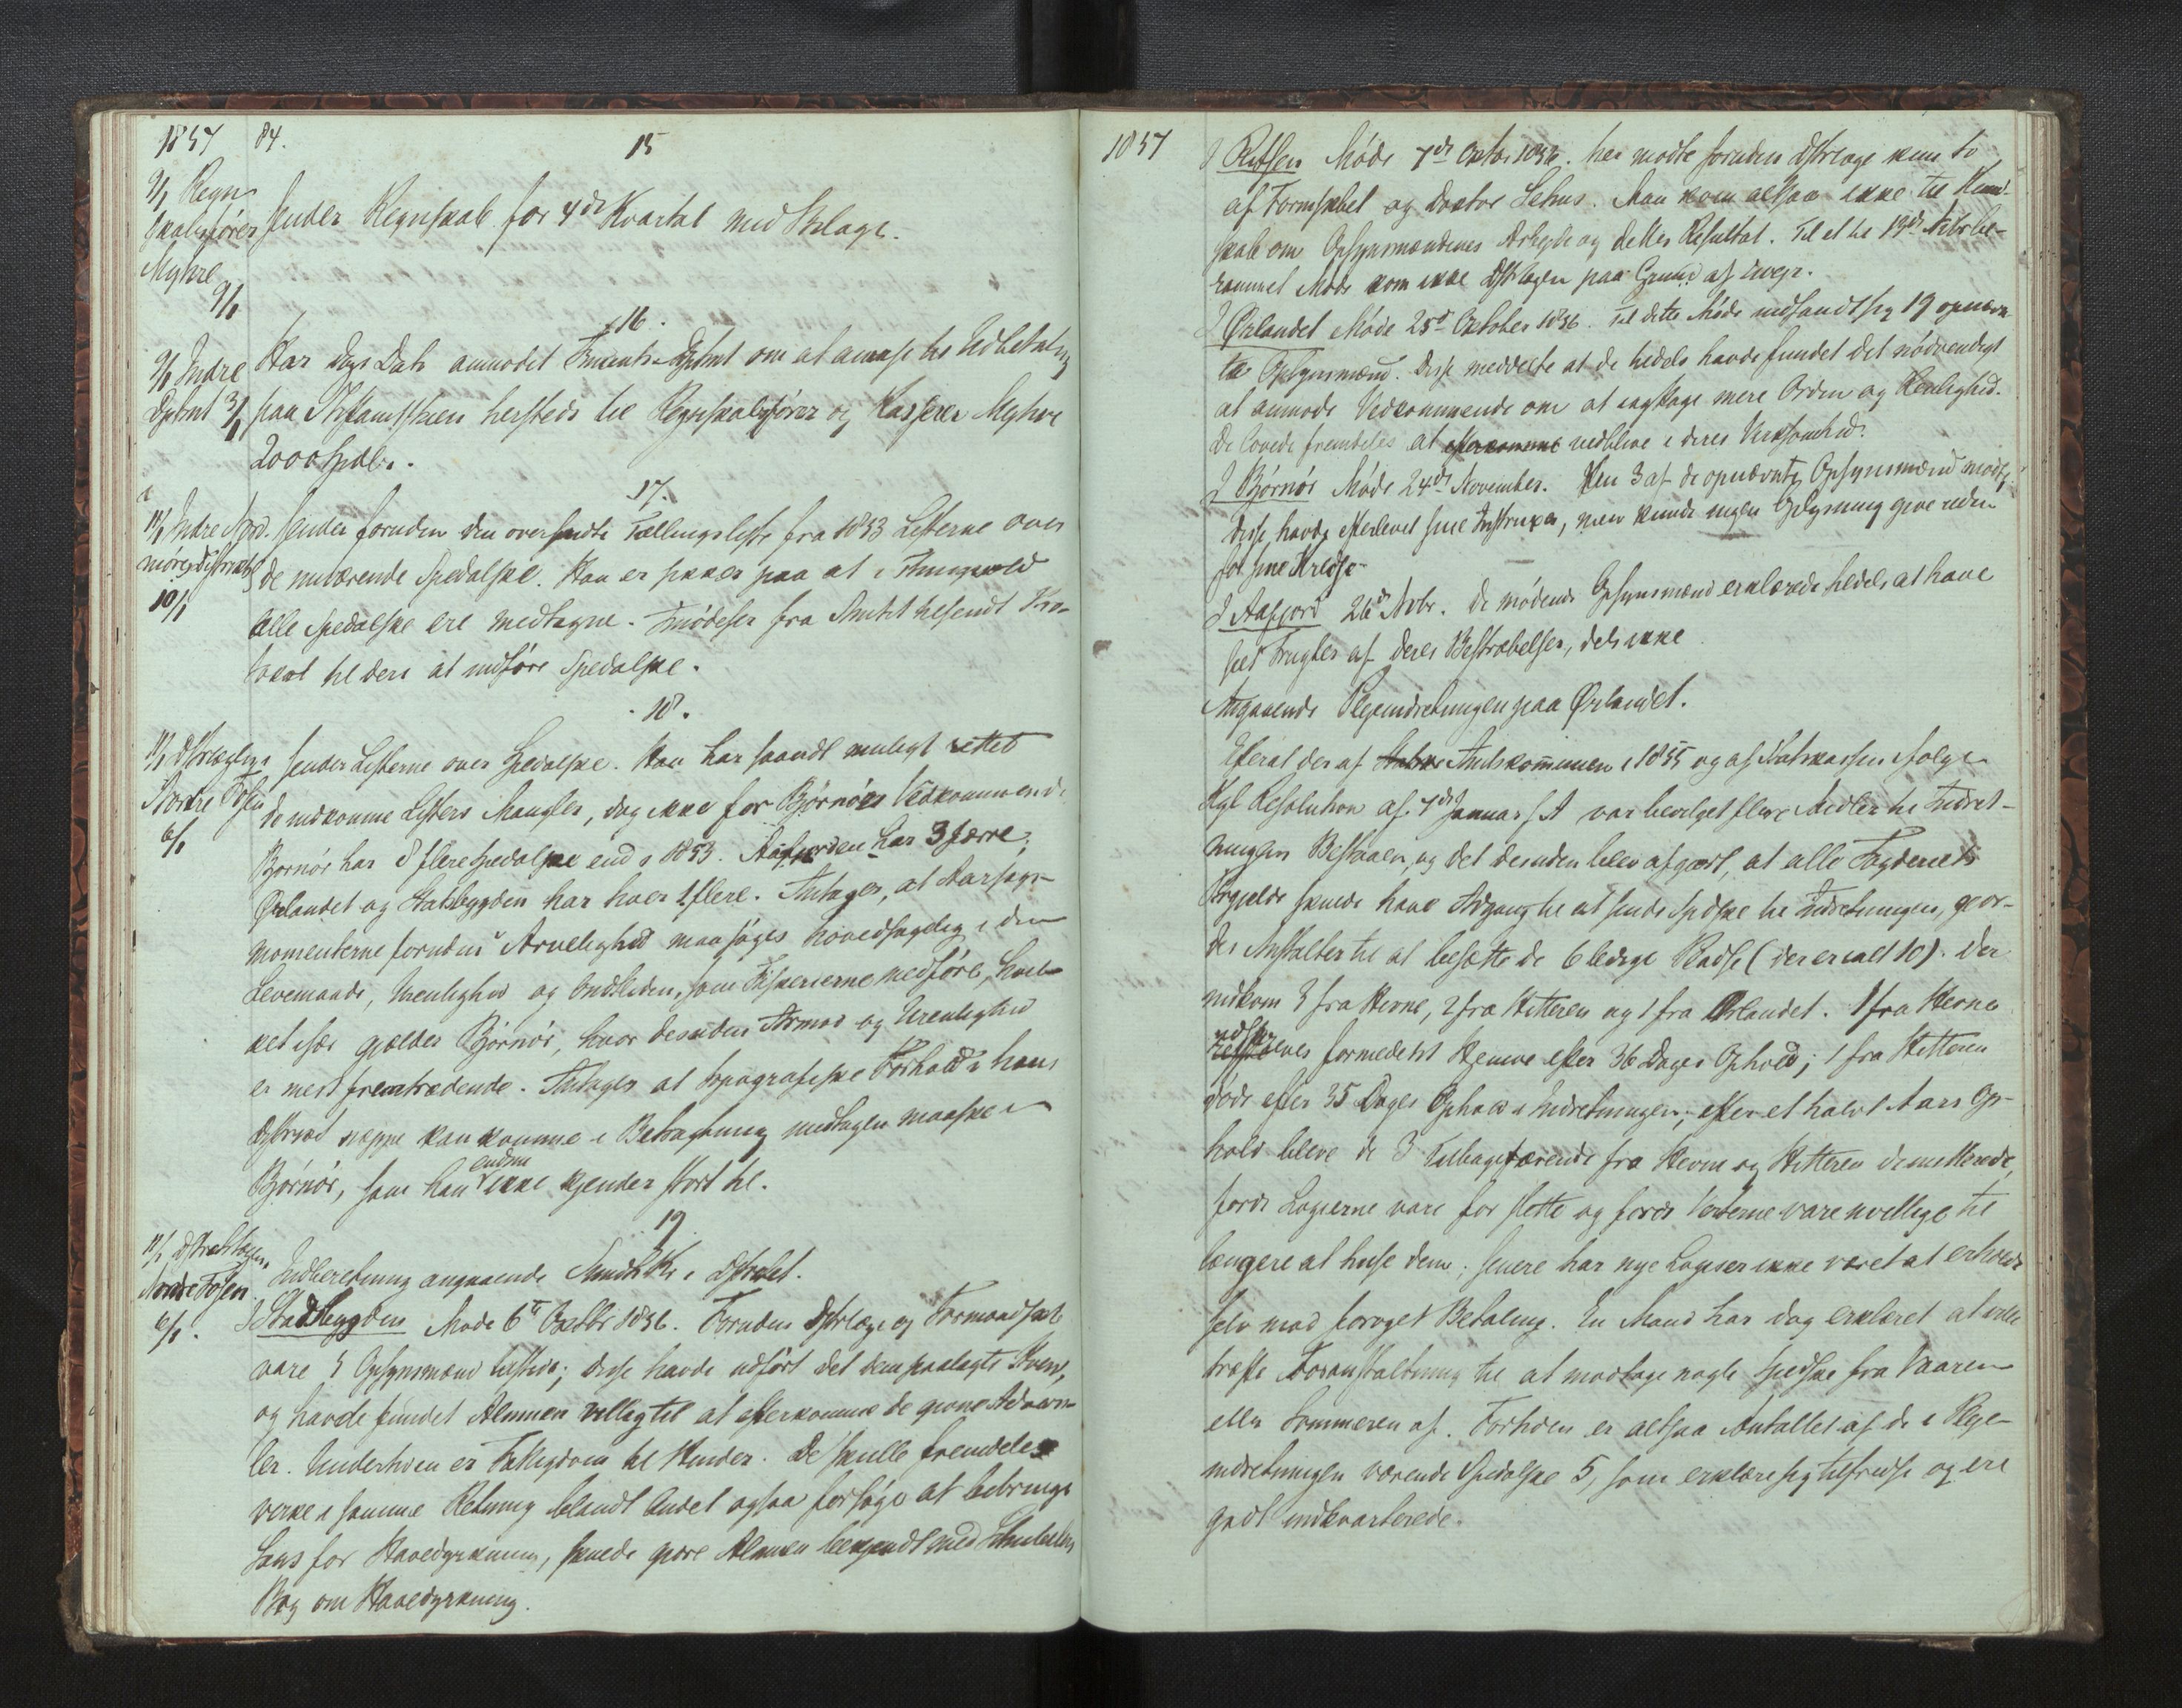 1857
84.
15
9/1 Regn
skabsfører
Myhre
9/1
sender Regnskab for 4de Kvartal med Bilage.
16.
9/1 Indre
Dptmt 3/1
Har dags Dato anmodet Finants-Dptmt om at anvise til Udbetaling
paa Stiftamtstuen hersteds til Regnskabsfører og Kasserer Myhre
2000 Spdlr.
17.
Indre Nord-
møres Distrikt
10/1
sender foruden den oversendte Tællingsliste fra 1853 Listerne over
de nuværende Spedalske. Han er sikker paa at i Tingvold
alle Spedalske ere medtagne. Imødeser fra Amtet tilsendt Pro-
tocol til deri at indføre Spedalske.
18.
11/1 Dstrlægen i
Nordre Fosen
6/1
sender Listerne over Spedalske. Han har saavidt muligt rettet
de indkomne Listers Mangler, dog ikke for Bjørnørs Vedkommende.
Bjørnør har 8 flere Spedalske end i 1853. Aafjorden har 3 færre,
Ørlandet og Stadsbygden har hver 1 flere. Antager, at Aarsags-
momenterne foruden i Arvelighed maa søges hovedsagelig i den
Levemaade, Urenlighed og Ondliden, som Fiskerierne medføre, hvil-
ket især gjælder Bjørnør, hvor desuden Armod og Urenlighed
er mest fremtrædende. Antager at topografiske Forhold i hans
Dstrict neppe kan komme i Betragtning undtagen maaske i
Bjørnør, som han endnu ikke kjender stort til.
19
11/1 Dstrictslægen
Nordre Fosen
6/1.
Indberetning angaaende SundhK. i Dstrictet.
I Stadsbygden Møde 6te Octbr 1856. Foruden Dstrlæge og Formandskab
vare 5 Opsynsmænd tilstede; disse havde udført det dem paalagte Hverv,
og havde fundet Almuen villig til at efterkomme de givne Advars-
ler. Undertiden er Fattigdom til Hinder. De skulle fremdeles
virke i samme Retning blandt Andet ogsaa forsøge at bibringe
Sans for Havedyrkning, skulde gjøre Almuen bekjendt med Schübelers
Bog om Havedyrkning.
1857
I Rissen Møde 7de Octbr 1856. her mødte foruden Dstrlæge kun to
af Formskbet og Doctor Lehns. Man kom altsaa ikke til Kund-
skab om Opsynsmændenes Arbejde og dettes Resultat. Til et til 19de Novbr be-
rammet Møde kom ikke Dstrlægen paa Grund af Uvejr.
I Ørlandet Møde 25de Oktober 1856. Til dette Møde indfandt sig 19 opnævn-
te Opsynsmænd. Disse meddelte at de tildels havde fundet det nødvendigt
at anmode Vedkommende om at iagttage mere Orden og Renlighed.
De lovede fremdeles at efterkomme vedblive i deres Virksomhed.
I Bjørnør Møde 24de November. Kun 3 af de opnævnte Opsynsmænd mødte
disse havde efterlevet sine Instruxer, men kunde ingen Oplysning give uden-
for sine Kredse.
I Aafjord 26de Novbr. De mødende Opsynsmænd erklærede tildels at have
seet Frugter af deres Bestræbelser, dels ikke.
Angaaende Plejeindretningen paa Ørlandet.
Efterat der af Amtskommunen i 1855 og af Statskassen ifølge
Kgl Resolution af 7de Januar f A var bevilget flere Midler til Indret-
ningens Bestaaen, og det desuden blev afgjort, at alle Fogderiets
Prgjelde skulde have Adgang til at sende Spedske til Indretningen, gjor-
des Anstalter til at besætte de 6 ledige Pladse (der er ialt 10). Der
indkom 3 fra Hevne, 2 fra Hitteren og 1 fra Ørlandet. 1 fra Hevne
udskreves formedelst Hjemve efter 36 Dages Ophold; 1 fra Hitteren
døde efter 35 Dages Ophold i Indretningen; efter et halvt Aars Op-
hold bleve de 3 Tilbageværende fra Hevne og Hitteren demitterede,
fordi Logierne vare for slette og fordi Værterne vare uvillige til
længere at huse dem; senere har nye Logier ikke været at erholde
selv mod forøget Betaling. En Mand har dog erklæret at ville
træffe Foranstaltning til at modtage nogle Spedske fra Vaaren
eller Sommeren af. Forhen er altsaa Antallet af de i Pleje-
indretningen værende Spedalske 5, som erklære sig tilfredse og ere
godt indkvarterede.